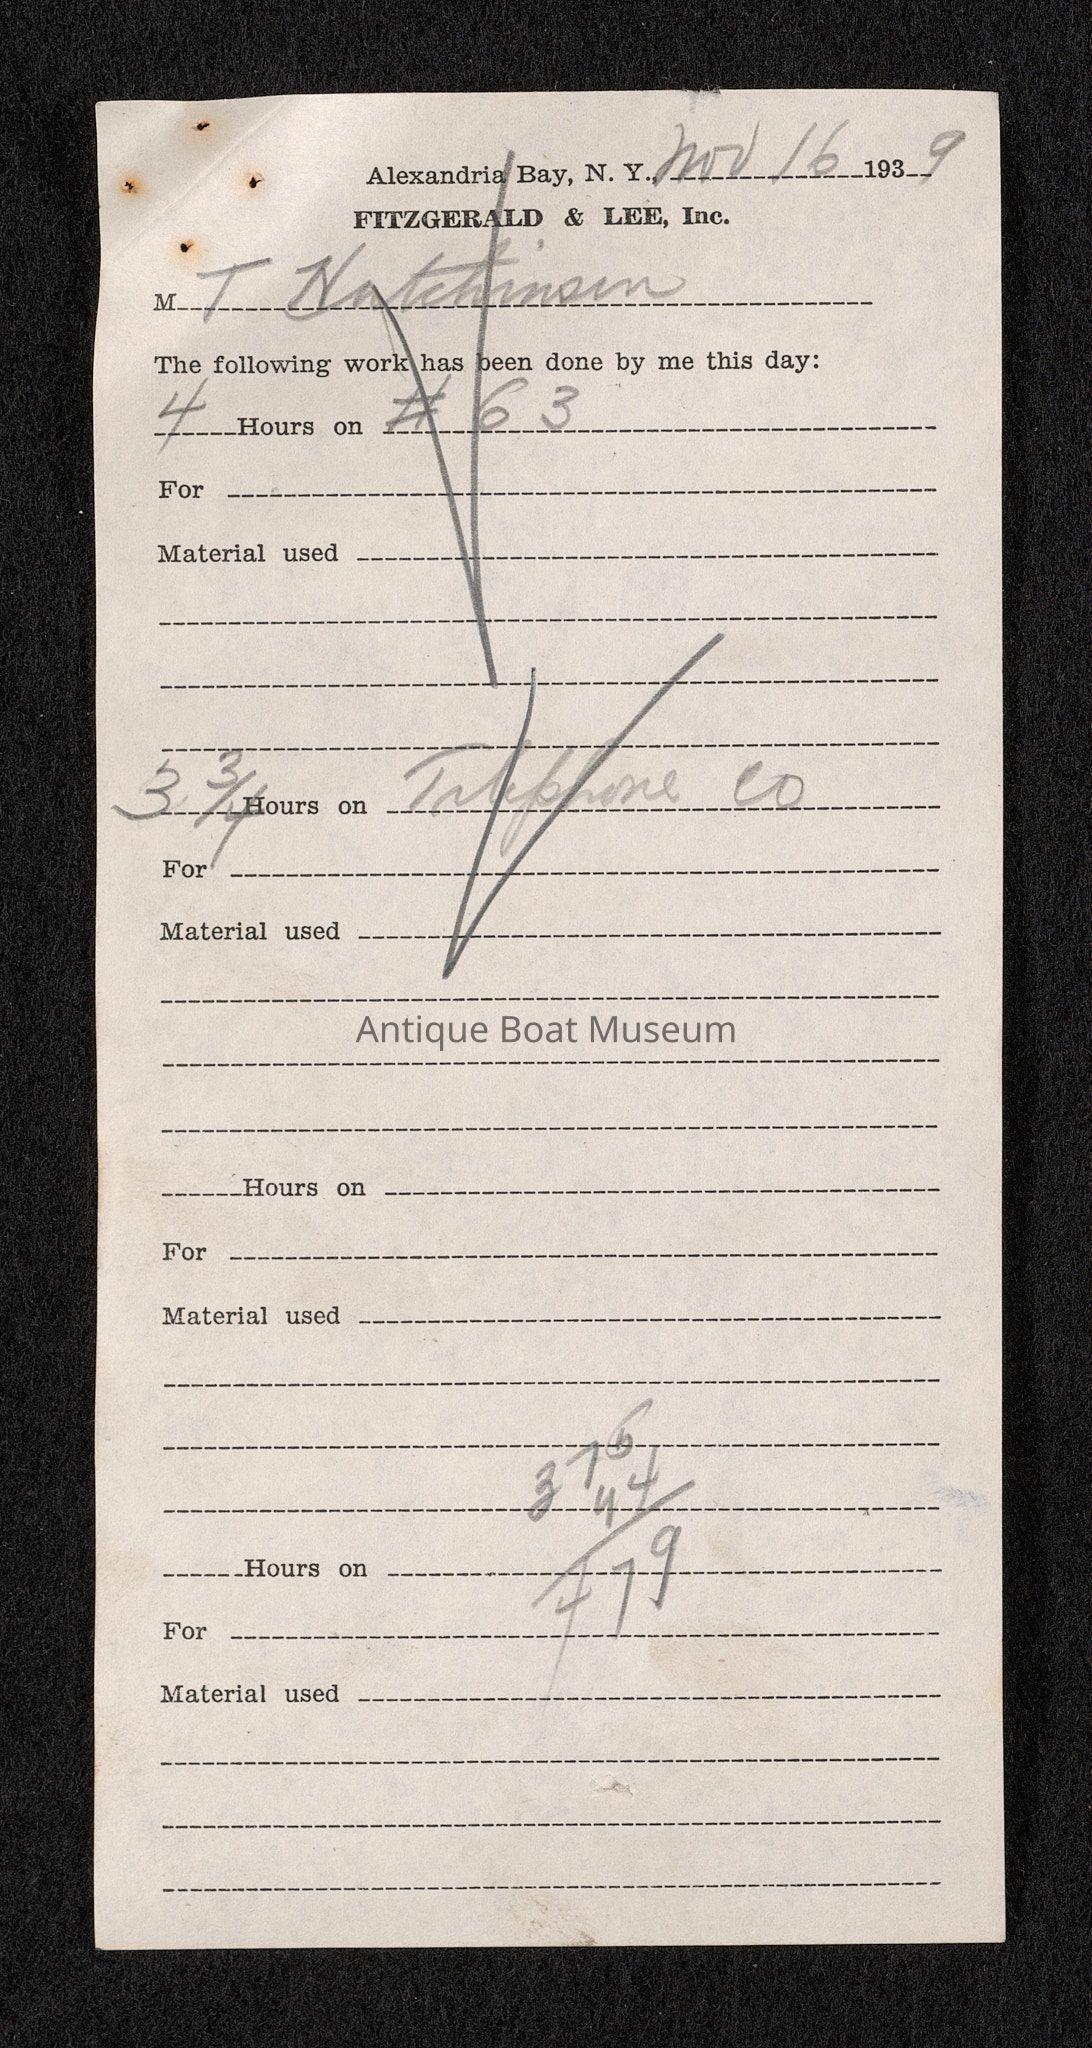 Alexandria Bay, N. Y., Nov 16 1939
FITZGERALD & LEE, Inc.
M T Hutchinson
The following work has been done by me this day:
4 Hours on # 63
For
Material used
3 3/4 Hours on Telephone Co
For
Material used
Antique Boat Museum
Hours on
For
Material used
376
44
Hours on
479
For
Material used